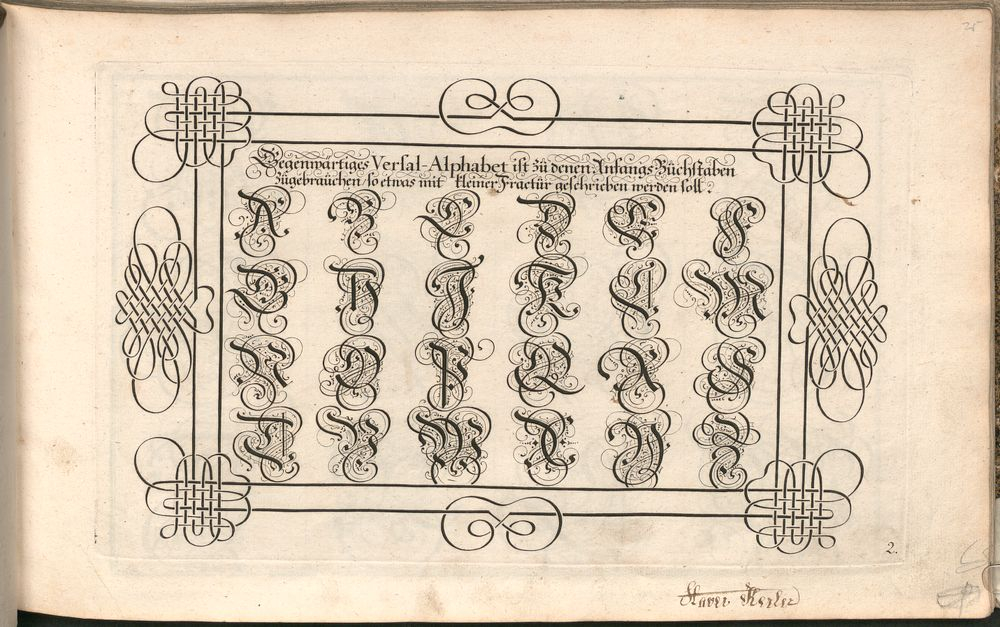 Gegenwärtiges Versal-Alphabet ist zü denen Anfangs Büchstaben
Zügebraüchen so etwas mit kleiner Fractür geschrieben werden soll.
A B C D E F
G H J K L M
N O P Q R S
T V W X Y Z
2.
25